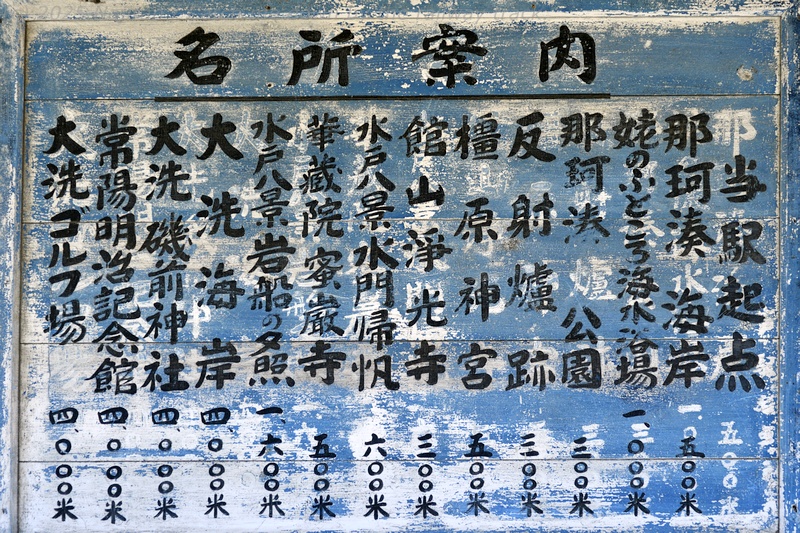 名所案内
当駅起点
那珂湊海岸 一、五〇〇米
姥のふところ海水浴場 一、〇〇〇米
那珂湊公園 三〇〇米
反射爐跡 三〇〇米
橿原神宮 五〇〇米
館山浄光寺 三〇〇米
水戸八景水門帰帆 六〇〇米
華蔵院蜜巌寺 五〇〇米
水戸八景岩船の夕照 一、六〇〇米
大洗海岸 四、〇〇〇米
大洗磯前神社 四、〇〇〇米
常陽明治記念館 四、〇〇〇米
大洗ゴルフ場 四、〇〇〇米